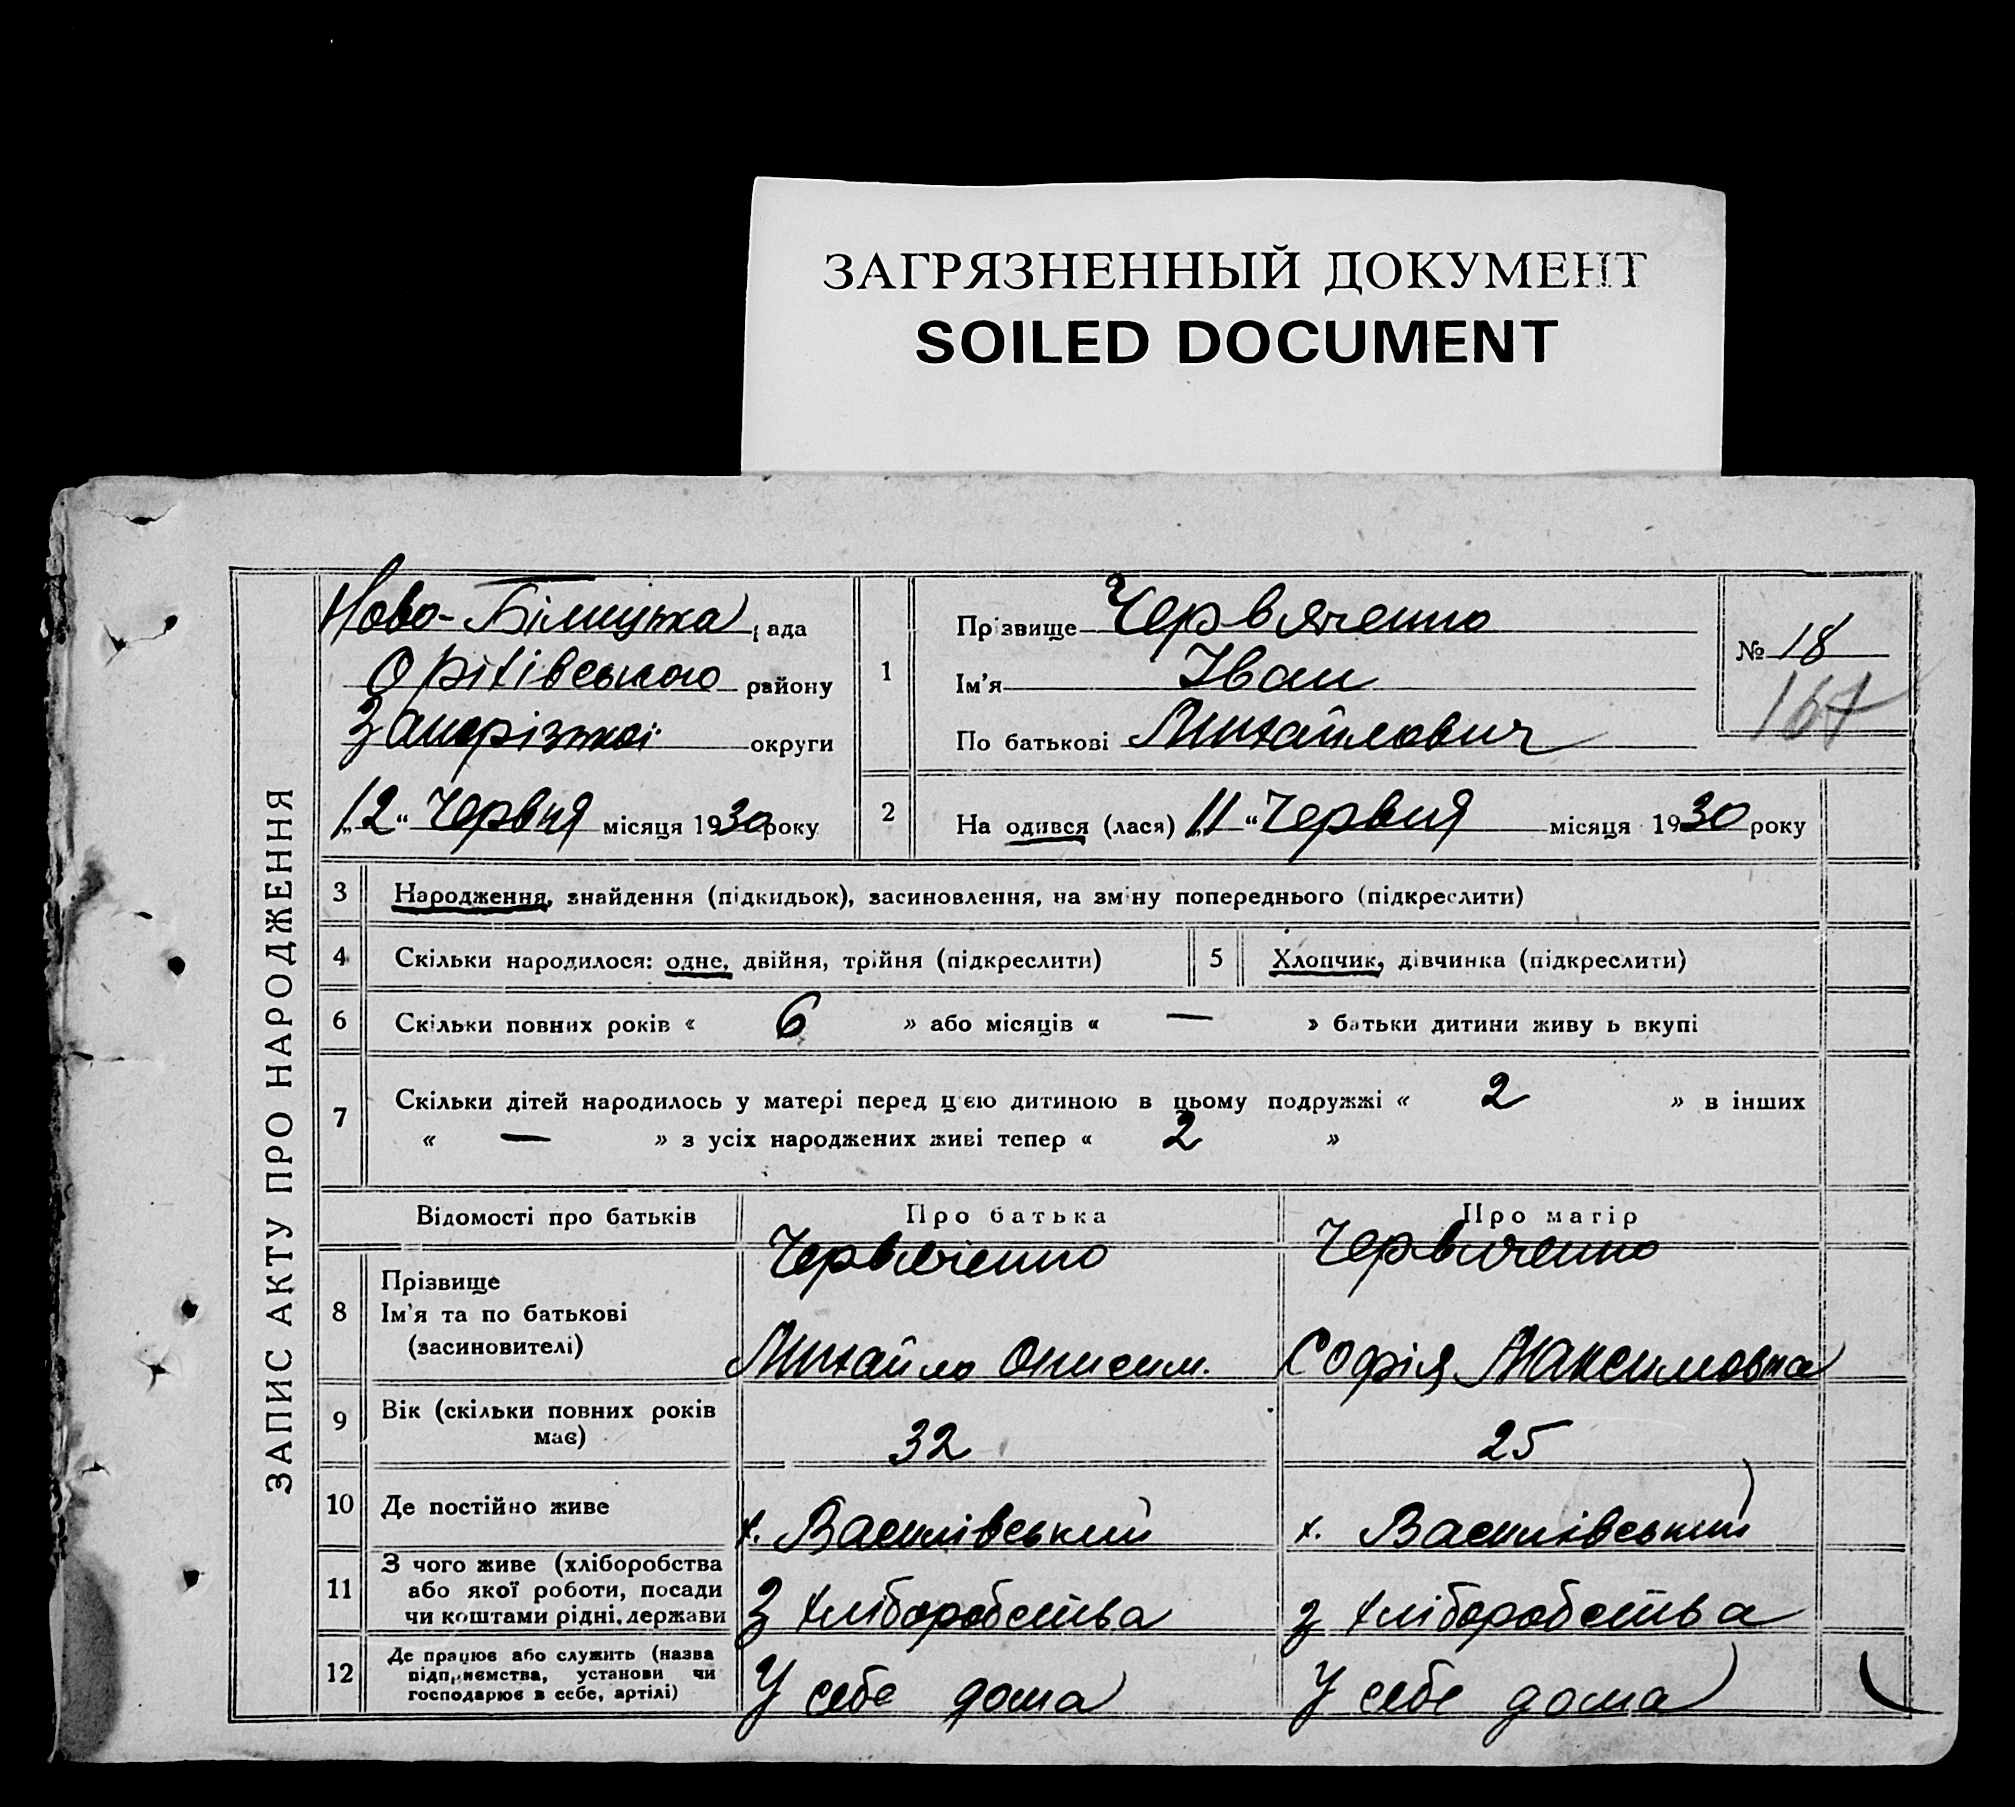 ЗАГРЯЗНЕННЫЙ ДОКУМЕНТ
SOILED DOCUMENT
ЗАПИС АКТУ ПРО НАРОДЖЕННЯ
рада
Оріхівського району
Запорізької округи
„12“ Червня місяця 1930 року
1
Прізвище Черв'яченко
Ім'я Іван
По батькові Михайлович
№ 18
167
2
На одився (лася) „11“ Червня місяця 1930 року
3 Народження, знайдення (підкидьок), засиновлення, на зміну попереднього (підкреслити)
4 Скільки народилося: одне, двійня, трійня (підкреслити)
5 Хлопчик, дівчинка (підкреслити)
6 Скільки повних років « 6 » або місяців « — » батьки дитини живу ь вкупі
7 Скільки дітей народилось у матері перед цією дитиною в цьому подружжі « 2 » в інших
« — » з усіх народжених живі тепер « 2 »
Відомості про батьків
Про батька
Про матір
8
Прізвище
Ім'я та по батькові
(засиновителі)
Червяченко
Михайло Онисим.
Червяченко
Софія Максимовна
9 Вік (скільки повних років
має)
32
25
10 Де постійно живе
х. Василівський
х. Василівський
11
З чого живе (хліборобства
або якої роботи, посади
чи коштами рідні, держави
З хліборобства
З хліборобства
12
Де працює або служить (назва
підприємства, установи чи
господарює в себе, артілі)
У себе дома
У себе дома